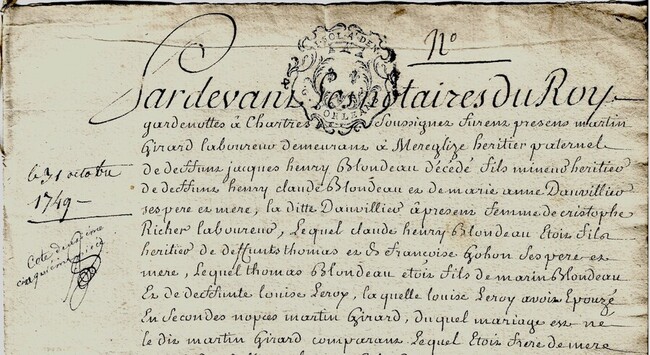 No
SOL & DEN
ORLEA
Pardevant Les notaires Du Roy
gardenottes à Chartres soussignez furent presens martin
Girard laboureur demeurant à Mereglize heritier paternel
de deffunt jacques henry Blondeau décédé fils mineur heritier
de deffunt henry claude Blondeau et de marie anne Dauvillier
ses pere et mere, la ditte Dauvillier àpresent femme de cristophe
Richer laboureur, Lequel claude henry Blondeau Etoit fils
heritier de deffunts thomas et de francoise Gohon ses pere et
mere, Lequel thomas Blondeau etoit fils de marin Blondeau
Et de deffunte louise Leroy, la quelle louise Leroy avoit Epouzé
En secondes nopces martin Girard, du quel mariage est né
le dit martin Girard comparant Lequel Etoit frere de mere
le 31 octobre
1749
Cote
cinquieme